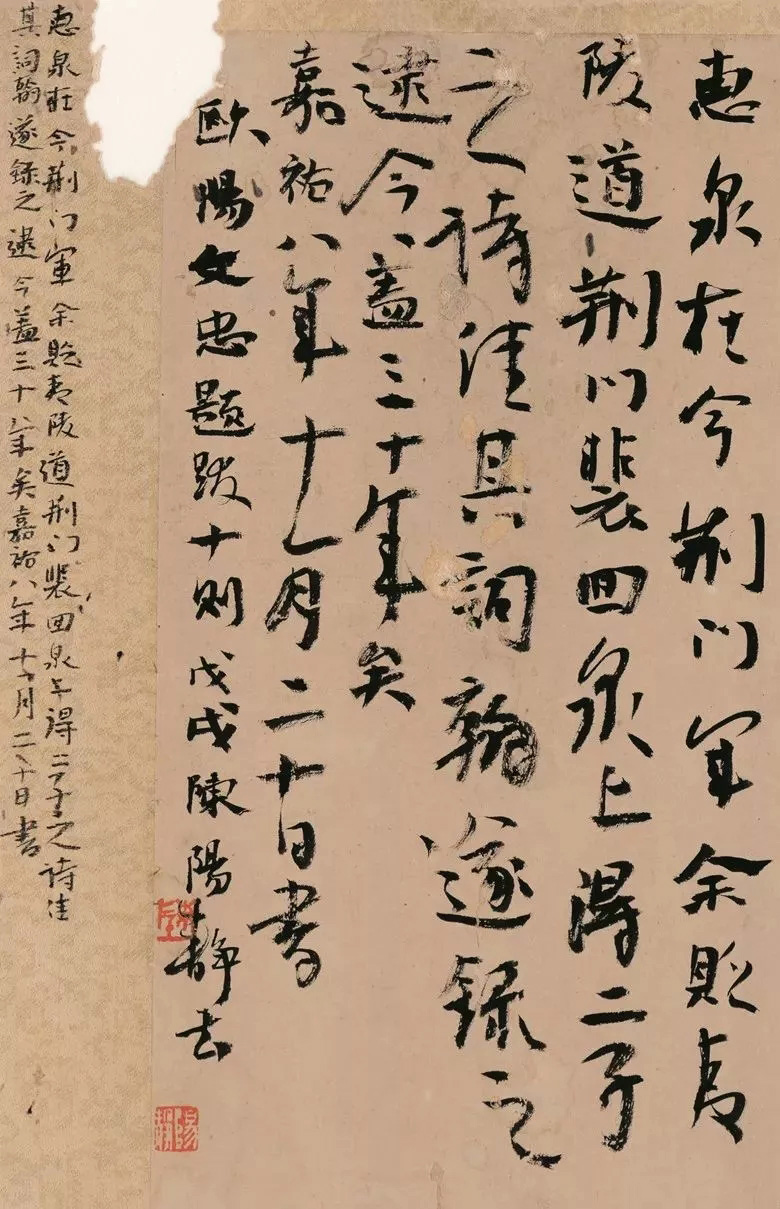 恵泉在今荆门军余貶夷
陵道荆门裴回泉上得二子
之诗佳其詞翰遂録之
逮今蓋三十年矣
嘉祐八年十一月二十日書
歐陽文忠題跋十则戊戌陳陽静书
恵泉在今荆门軍余貶夷陵道荆门裴回泉上得二子之诗佳
其詞翰遂録之逮今蓋三十年矣嘉祐八年十一月二十日書